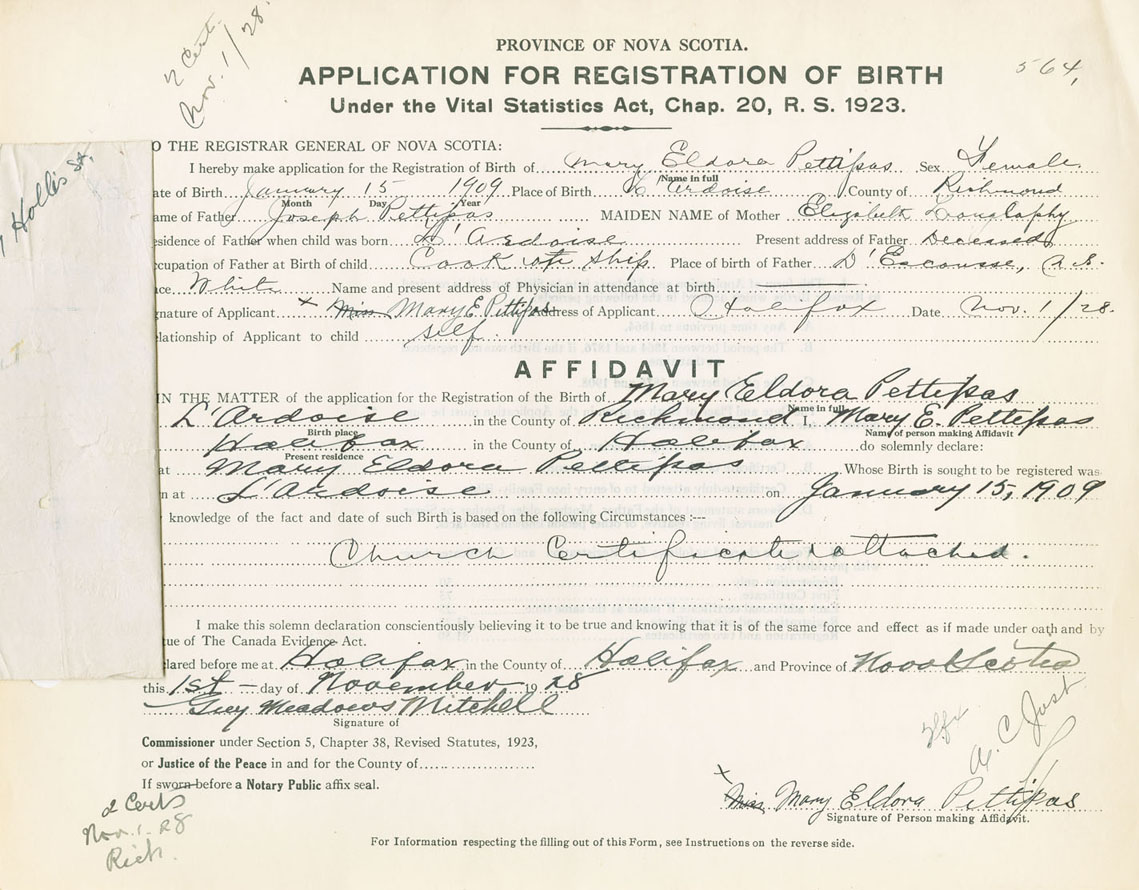 2 Cert.
Nov. 1/28.
PROVINCE OF NOVA SCOTIA.
564,
APPLICATION FOR REGISTRATION OF BIRTH
Under the Vital Statistics Act, Chap. 20, R. S. 1923.
Hollis St.
O THE REGISTRAR GENERAL OF NOVA SCOTIA:
I hereby make application for the Registration of Birth of Mary Eldora Pettipas Sex Female
Name in full
ate of Birth January 15 1909 Place of Birth L'Ardoise County of Richmond
Month Day Year
ame of Father Joseph Pettipas MAIDEN NAME of Mother Elizabeth
esidence of Father when child was born L'Ardoise Present address of Father Deceased
ccupation of Father at Birth of child Cook on ship Place of birth of Father D'Escousse,
ce White Name and present address of Physician in attendance at birth
gnature of Applicant x Miss Mary E. Pettipas dress of Applicant Halifax Date Nov. 1/28.
elationship of Applicant to child self
AFFIDAVIT
IN THE MATTER of the application for the Registration of the Birth of Mary Eldora Pettipas
Name in full
L'Ardoise in the County of Richmond I, Mary E. Pettipas
Birth place Name of person making Affidavit
Halifax in the County of Halifax do solemnly declare:
Present residence
at Mary Eldora Pettipas Whose Birth is sought to be registered was
n at L'Ardoise on January 15, 1909
knowledge of the fact and date of such Birth is based on the following Circumstances :---
Church Certificate attached.
I make this solemn declaration conscientiously believing it to be true and knowing that it is of the same force and effect as if made under oath and by
tue of The Canada Evidence Act.
lared before me at Halifax in the County of Halifax and Province of Nova Scotia
this 1st day of November 1928
Guy Meadows Mitchell
Signature of
Commissioner under Section 5, Chapter 38, Revised Statutes, 1923,
or Justice of the Peace in and for the County of
If sworn before a Notary Public affix seal.
x Miss Mary Eldora Pettipas
Signature of Person making Affidavit.
2 Certs
Nov. 1. 28
Rich.
For Information respecting the filling out of this Form, see Instructions on the reverse side.